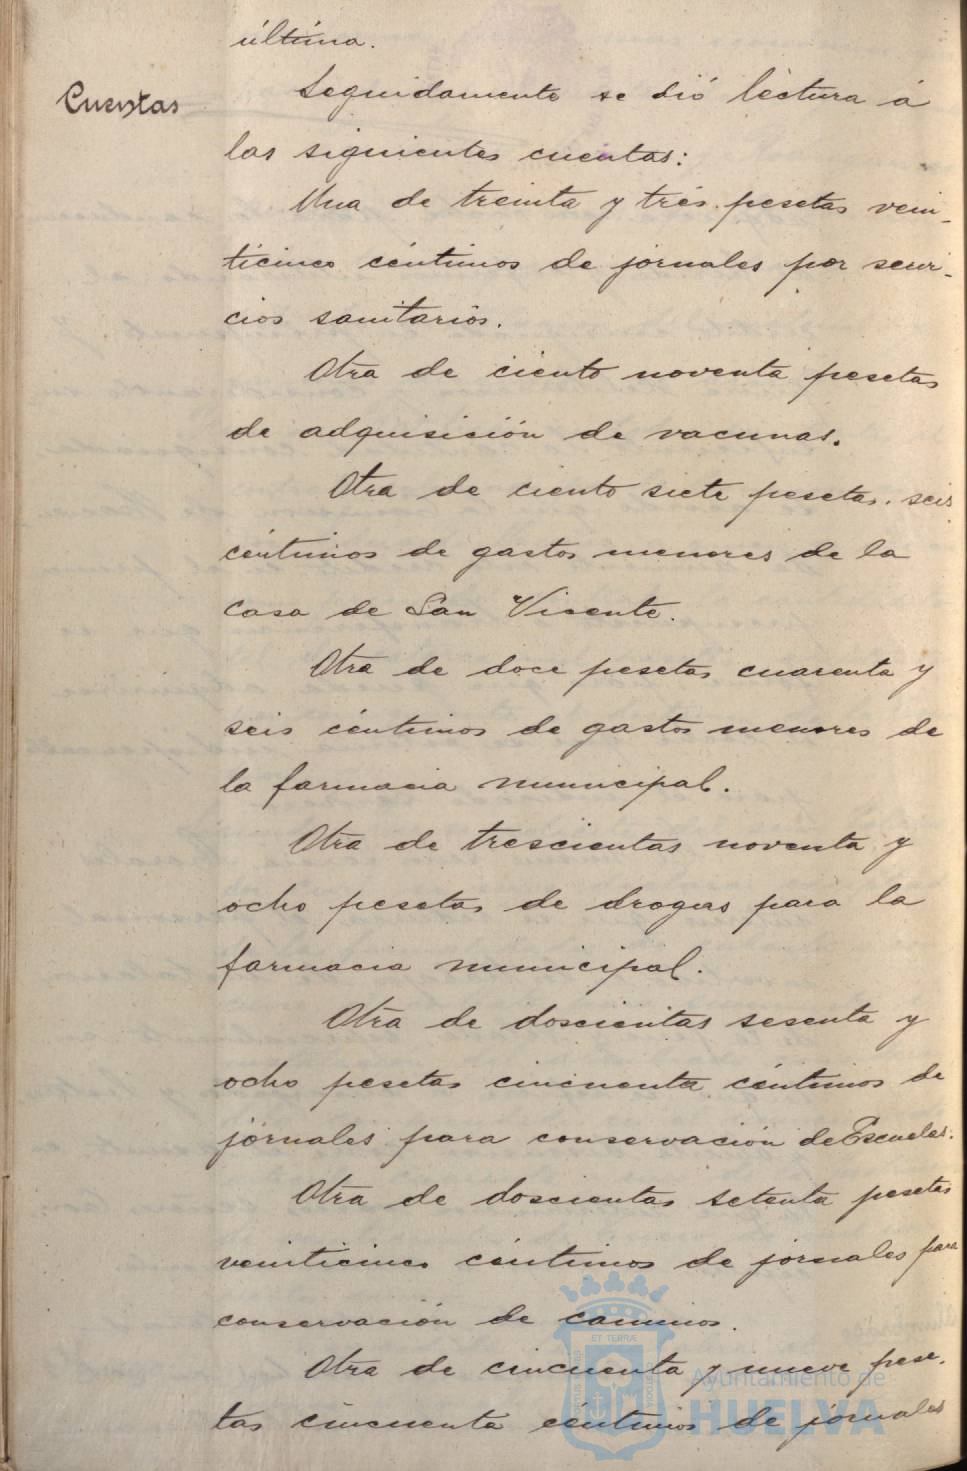 última.
Cuentas
Seguidamente se dió lectura á
las siguientes cuentas:
Una de treinta y tres pesetas vein-
ticinco céntimos de jornales por servi-
cios sanitarios.
Otra de ciento noventa pesetas
de adquisición de vacunas.
Otra de ciento siete pesetas seis
céntimos de gastos menores de la
Casa de San Vicente.
Otra de doce pesetas cuarenta y
seis céntimos de gastos menores de
la farmacia municipal.
Otra de trescientas noventa y
ocho pesetas de drogas para la
farmacia municipal.
Otra de doscientas sesenta y
ocho pesetas cincuenta céntimos de
jornales para conservación de Escuelas.
Otra de doscientas setenta pesetas
veinticinco céntimos de jornales para
conservación de caminos.
Otra de cincuenta y nueve pese-
tas cincuenta céntimos de jornales
ET TERRÆ
Ayuntamiento de
HUELVA